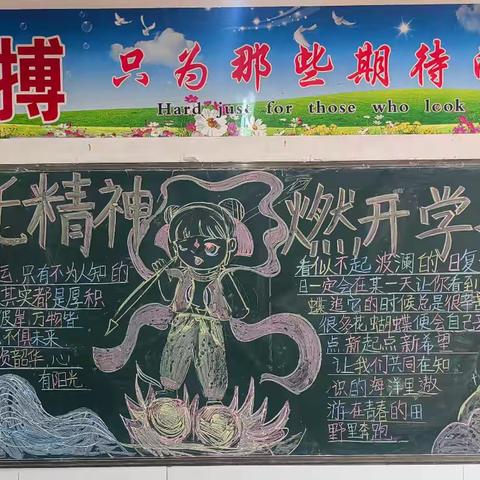 搏 只为那些期待
Hard just for those who look
精神
燃开学
运,只有不为人知的
其实都是厚积
彼岸万物皆
不惧未来
韶华心
有阳光
看似不起波澜的日复
日一定会在某一天让你看到
蝶追它的时候总是很辛苦
很多花蝴蝶便会自己
点新起点新希望
让我们共同在知
识的海洋里遨
游在青春的田
野里奔跑